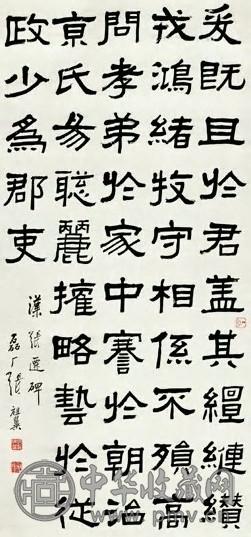 爰既且於君盖其繵縺纘
戎鴻緒牧守相係不殞高
問孝弟於家中謇於朝治
京氏易聰麗權略藝於從
政少為郡吏
漢張遷碑
磊厂張祖翼
中华收藏网